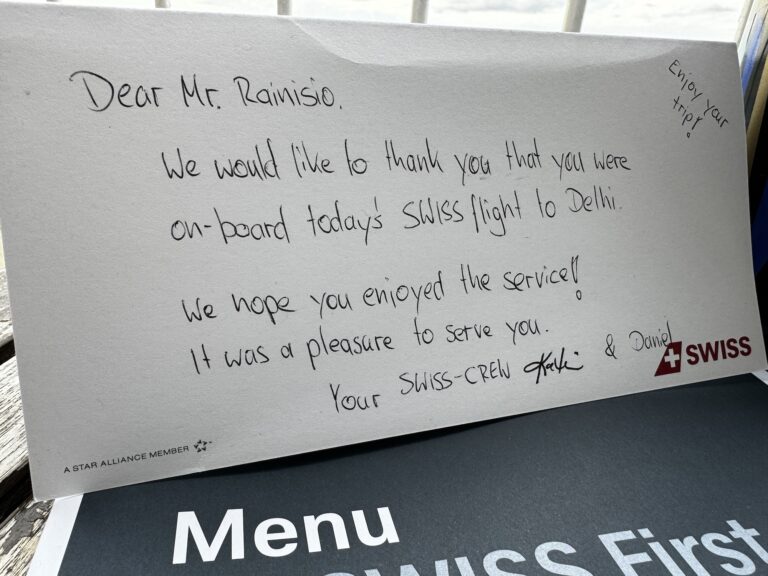 Dear Mr. Rainisio.
Enjoy your
trip!
We would like to thank you that you were
on-board today's SWISS flight to Delhi.
We hope you enjoyed the service!
It was a pleasure to serve you.
Your SWISS-CREW & Daniel
SWISS
A STAR ALLIANCE MEMBER
Menu
SWISS First